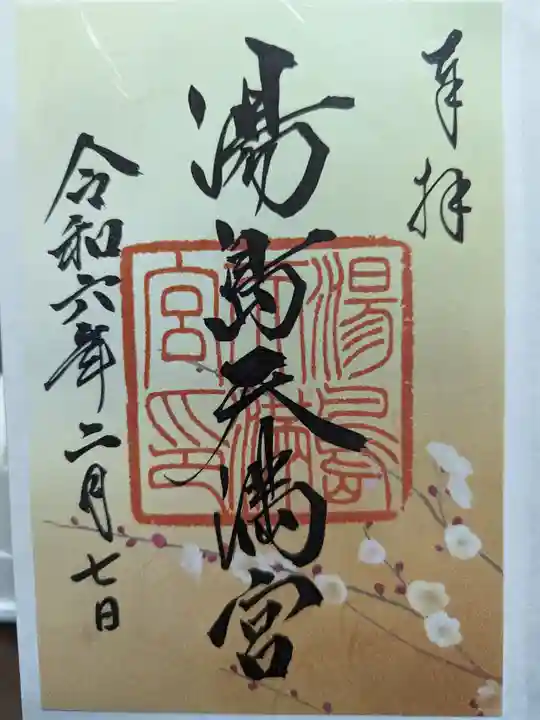 奉拝
湯島天満宮
令和六年二月七日
湯島
天満
宮印